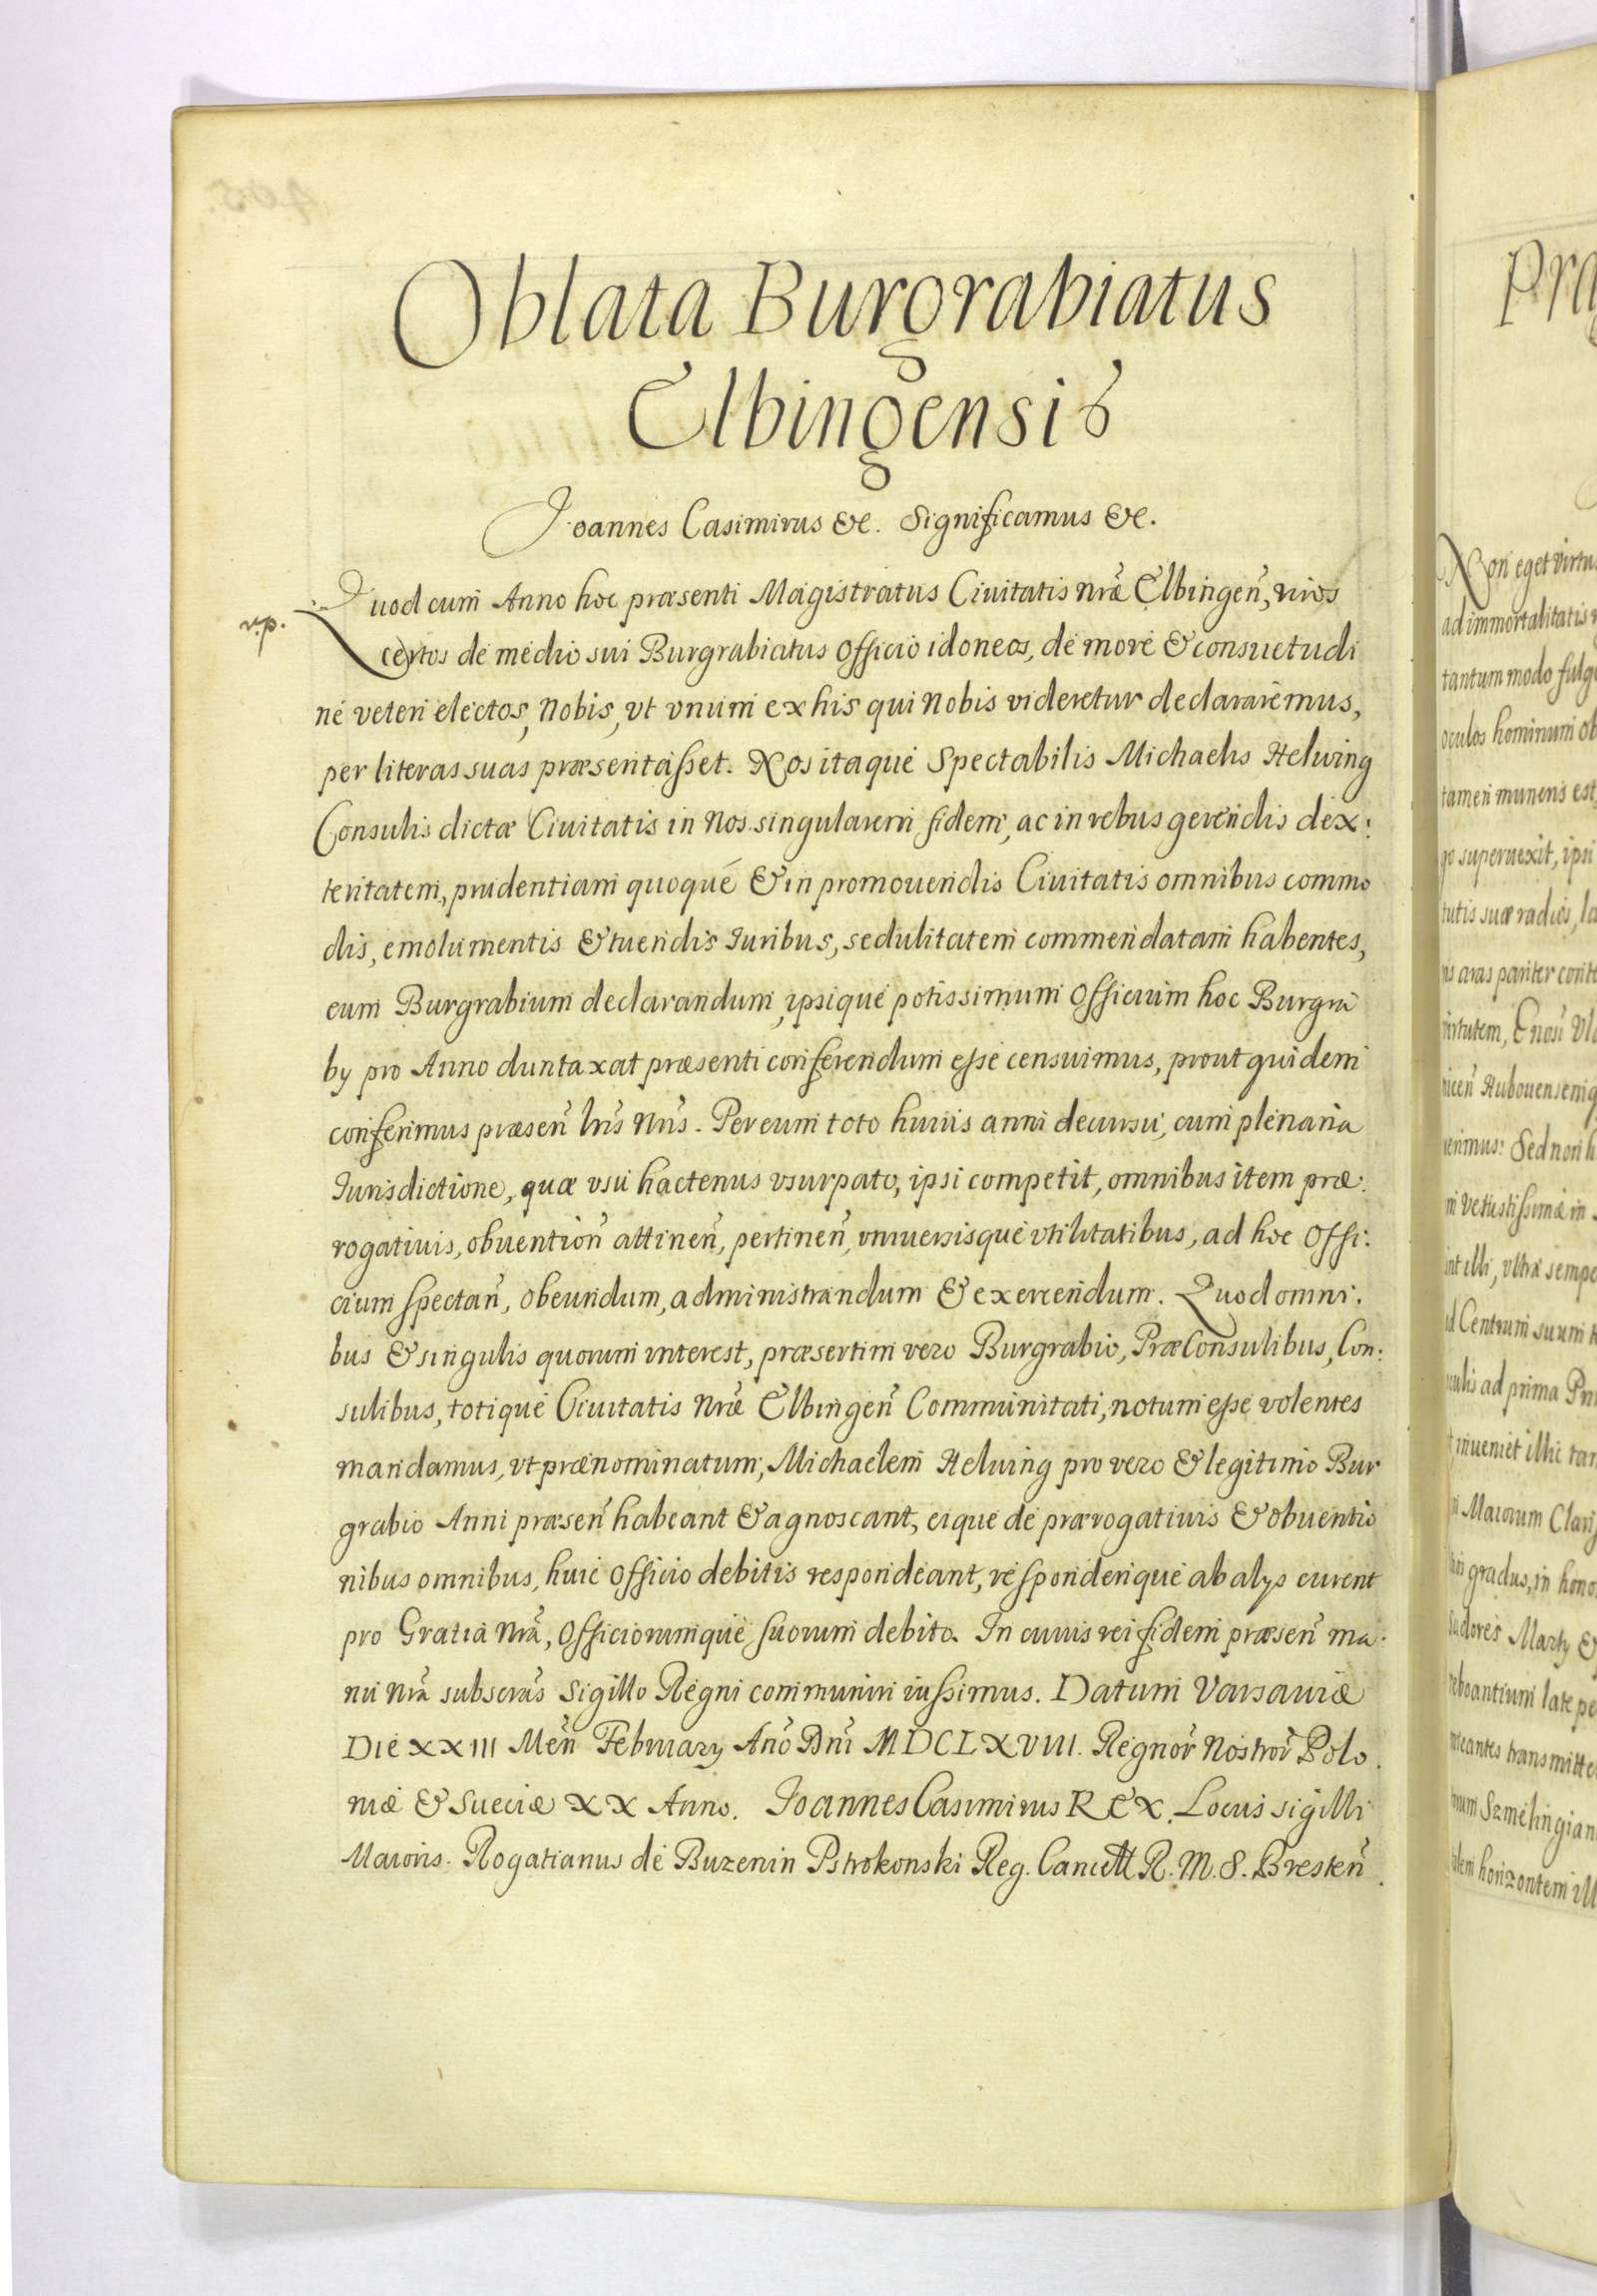 Oblata Burgrabiatus
Elbingensis
Joannes Casimirus &c. Significamus &c.
v.p.
Quod cum Anno hoc præsenti Magistratus Ciuitatis nr̃æ Elbingeñ, viros
certos de medio sui Burgrabiatus officio idoneos, de more & consuetudi
ne veteri electos, Nobis, vt vnum ex his qui Nobis videretur declararemus,
per literas suas præsentasset. Nos itaque Spectabilis Michaelis Helwing
Consulis dictæ Ciuitatis in Nos singularem fidem, ac in rebus gerendis dex:
teritatem, prudentiam quoque & in promouendis Ciuitatis omnibus commo
dis, emolumentis & tuendis Iuribus, sedulitatem commendatam habentes,
eum Burgrabium declarandum, ipsique potissimum Officium hoc Burgra
by pro Anno duntaxat præsenti conferendum esse censuimus, prout quidem
conferimus præseñ lrĩs Nrĩs. Per eum toto huius anni decursu, cum plenaria
Iurisdictione, quæ vsu hactenus vsurpato, ipsi competit, omnibus item præ:
rogatiuis, obuentioñ attineñ, pertineñ, vniuersisque vtilitatibus, ad hoc Offi:
cium spectañ, obeundum, administrandum & exercendum. Quod omni:
bus & singulis quorum interest, præsertim vero Burgrabio, PræConsulibus, Con:
sulibus, totique Ciuitatis Nr̃æ Elbingeñ Communitati, notum esse volentes
mandamus, vt prænominatum, Michaelem Helwing pro vero & legitimo Bur
grabio Anni præseñ habeant & agnoscant, eique de prærogatiuis & obuentio
nibus omnibus, huic officio debitis respondeant, responderique ab alys curent
pro Gratia Nr̃a, Officiorumque suorum debito. In cuius rei fidem præseñ ma:
nu Nr̃a subscr̃as Sigillo Regni communiri iussimus. Datum Varsauiæ
Die XXIII Meñ February Año Dñi MDCLXVIII. Regnor̃ Nostror̃ Polo:
niæ & Sueciæ XX Anno. Joannes Casimirus REX. Locus sigilli
Maioris. Rogatianus de Buzenin Pstrokonski Reg. Cancell R. M. S. Bresteñ.